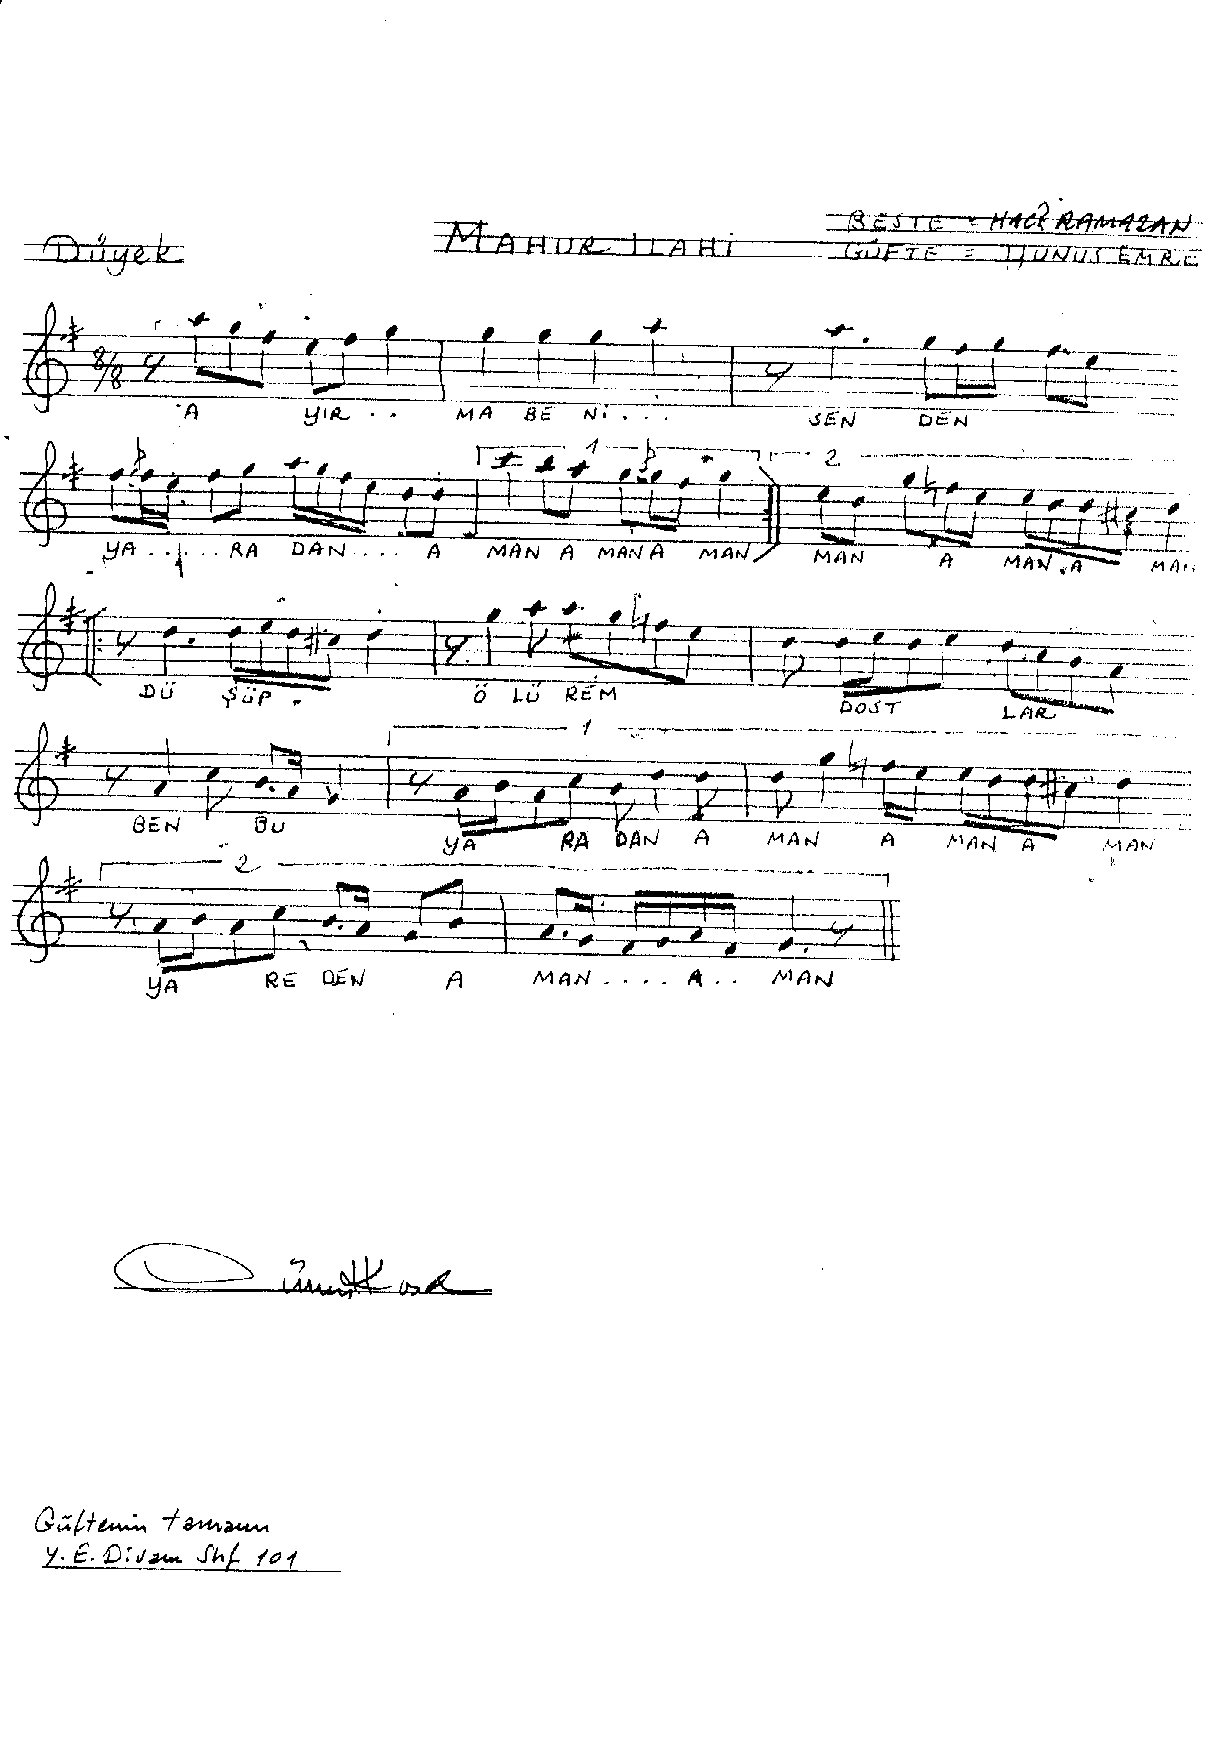 Düyek MAHUR İLAHİ BESTE = HACI RAMAZAN
GÜFTE = YUNUS EMRE
8/8
A YIR . . MA BE Nİ . . . SEN DEN
1 2
YA . . . . . RA DAN . . . . A MAN A MAN A MAN MAN A MAN . A MAN
DÜ ŞÜP . Ö LÜ REM DOST LAR
1
BEN BU YA RA DAN A MAN A MAN A MAN
2
YA RE DEN A MAN . . . . A . . MAN
Güftenin tamamı
Y. E. Divanı Shf 101